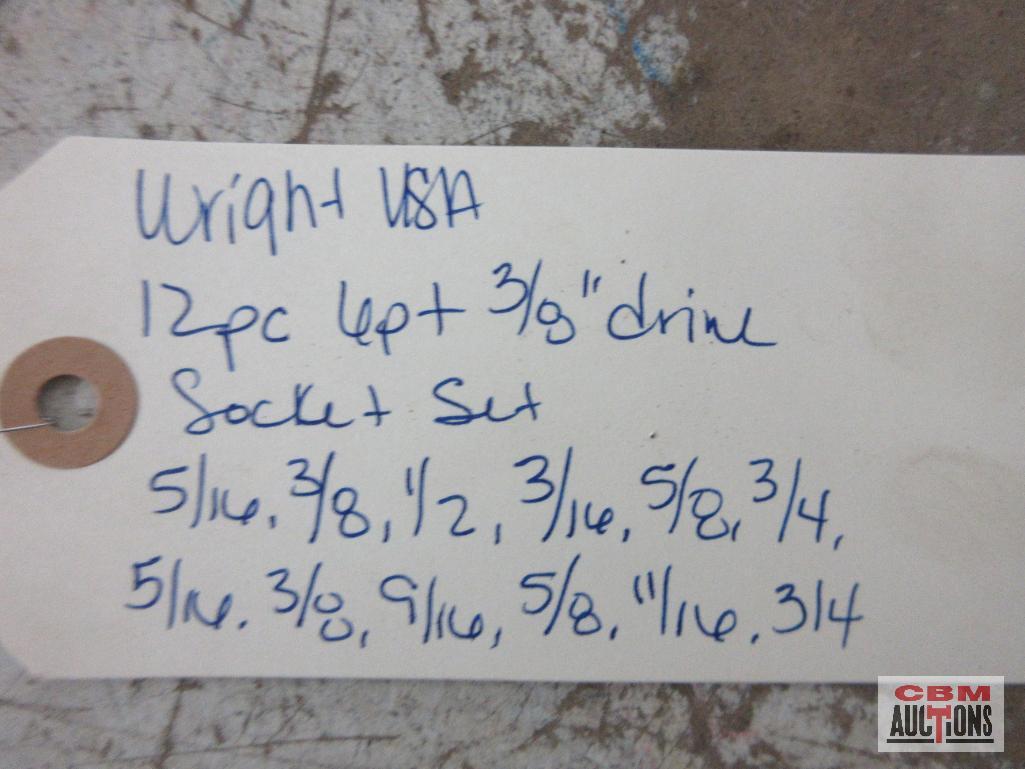 Wright USA
12pc 6pt 3/8" drive
Socket Set
5/16, 3/8, 1/2, 3/16, 5/8, 3/4,
5/16, 3/8, 9/16, 5/8, 11/16, 3/4
CBM
AUCTIONS